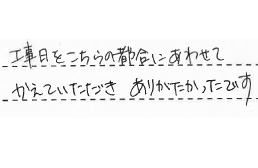 工事日をこちらの都合にあわせて
かえていただき ありがたかったです